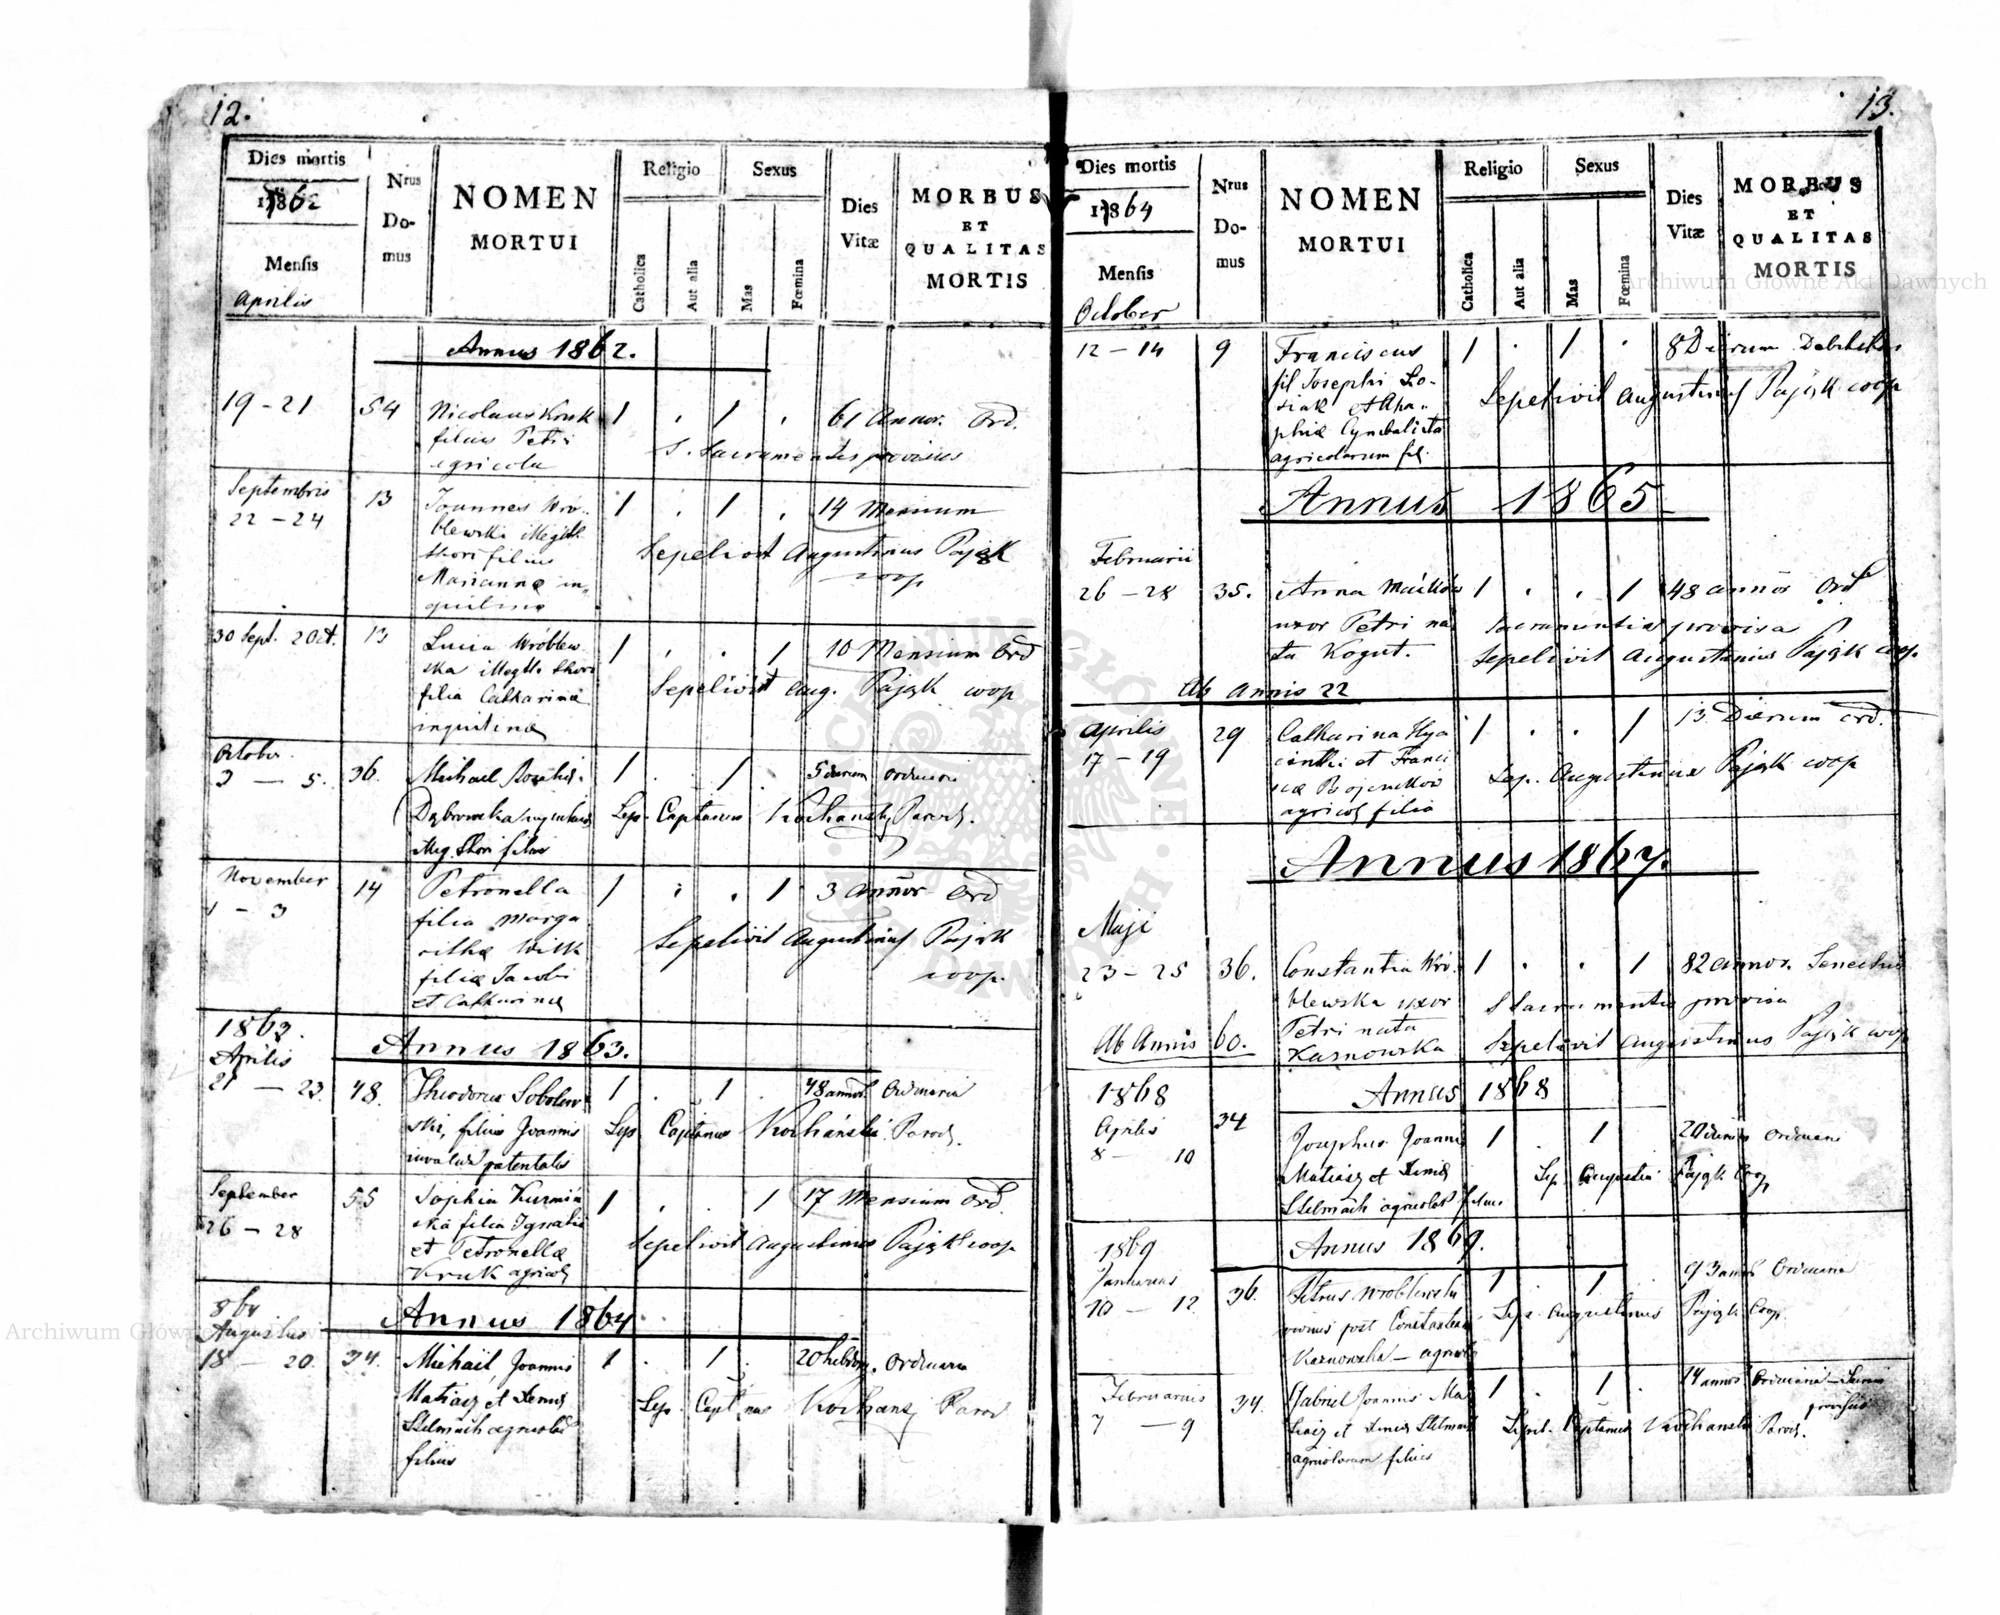 12.
Dies mortis
1862
Mensis
Aprilis
Nrus
Do-
mus
NOMEN
MORTUI
Religio
Catholica
Aut alia
Sexus
Mas
Fœmina
Dies
Vitæ
MORBUS
ET
QUALITAS
MORTIS
Annus 1862.
19-21 54 Nicolaus Kruk 1 . 1 . 61 Annor. Ord.
filius Petri S. Sacramentis provisus
agricola
Septembris
22-24 13 Joannes Wró- 1 . 1 . 14 Mensium
blewski illegit. Sepelivit Augustinus Pająk
thori filius coop
Marianna in-
quilina
30 Sept. 2 Oct. 13 Lucia Wróblew- 1 . . 1 10 Mensium Ord
ska illegit. thori Sepelivit Aug. Pająk coop
filia Catharina
inquilina
October
3 — 5. 36. Michael 1 . 1 5 dierum ordinaria
Dąbrowska Sep. Cajetanus Kochanski Paroch.
illeg. thori filius
November
1 - 3 14 Petronella 1 . . 1 3 annor Ord
filia Marga Sepelivit Augustinus Pająk
rithæ Wilk coop.
filiæ Jacobi
et Catharinæ
1863.
Annus 1863.
Aprilis
21 — 23. 48. Theodorus Sobolew 1 . 1 . 48 annor. Ordinaria
ski, filius Joannis Sep Cajetanus Kochański Paroch.
invalid patentalis
September
26 - 28 55 Sophia Kuzmiń 1 . . 1 17 Mensium Ord.
ska filia Ignatii Sepelivit Augustinus Pająk coop
et Petronella
Kruk agricol
864
Annus 1864
Augustus
18 — 20. 34. Michaël, Joannis 1 . 1 . 20 hebdom. Ordinaria
Matiasz et Xenia Sep. Cajetanus Kochanski Paroch
Stelmach agricola
filius
13.
Dies mortis
1864
Mensis
October
Nrus
Do-
mus
NOMEN
MORTUI
Religio
Catholica
Aut alia
Sexus
Mas
Fœmina
Dies
Vitæ
MORBUS
ET
QUALITAS
MORTIS
12-14 9 Franciscus 1 . 1 . 8 Dierum Debilitas
fil Josephi Sepelivit Augustinus Pająk coop
siak et Aga-
phiæ Cymbalista
agricolarum fil.
Annus 1865
Februarii
26-28 35. Anna 1 . . 1 48 annor Ord
uxor Petri na Sacramentis provisa
ta Kogut. Sepelivit Augustinus Pająk coop.
Ab Annis 22
Aprilis
17-19 29 Catharina Hya 1 . . 1 13. Dierum ord.
cinthi et Franci Sep. Augustinus Pająk coop
agricol filia
Annus 1867.
Maji
23-25 36. Constantia Wró- 1 . . 1 82 annor. Senectus
blewska uxor S Sacramentis provisa
Petri nata Sepelivit Augustinus Pająk coop
Ab Annis 60. Kasnowska
1868
Annus 1868
Aprilis
8 — 10 34 Josephus Joannis 1 . 1 20 dierum Ordinaria
Matiasz et Xenia Sep Augustin Pająk Coop
Stelmach agricolar filius
1869
Annus 1869.
Januarius
10 — 12. 36. Petrus Wróblewski 1 . 1 93 annor Ordinaria
viduus post Constantia Sep. Augustinus Pająk Coop.
Kasnowska — agricola
Februarius
7 — 9 34. Gabriel Joannis Ma 1 . 1 . 14 annor Ordinaria
tiasz et Xenia Stelmach Sepel. Cajetanus Kochanski Paroch.
provisus
agricolarum filius
Archiwum Główne Akt Dawnych
Archiwum Główne Akt Dawnych
ARCHIWUM GŁÓWNE AKT DAWNYCH